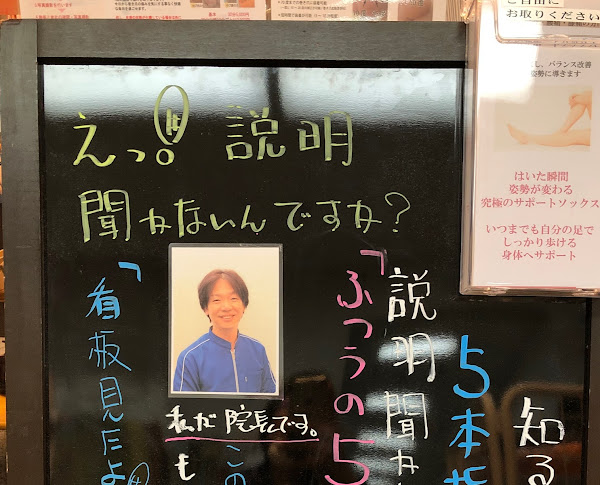 えっ!! 説明
聞かないんですか?
知る
5本指
説明 聞か
「ふつうの5
この
私が 院長です。
も
「看板見たよ
ご自由に
お取りください
し、バランス改善
姿勢に導きます
はいた瞬間
姿勢が変わる
究極のサポートソックス
いつまでも自分の足で
しっかり歩ける
身体へサポート